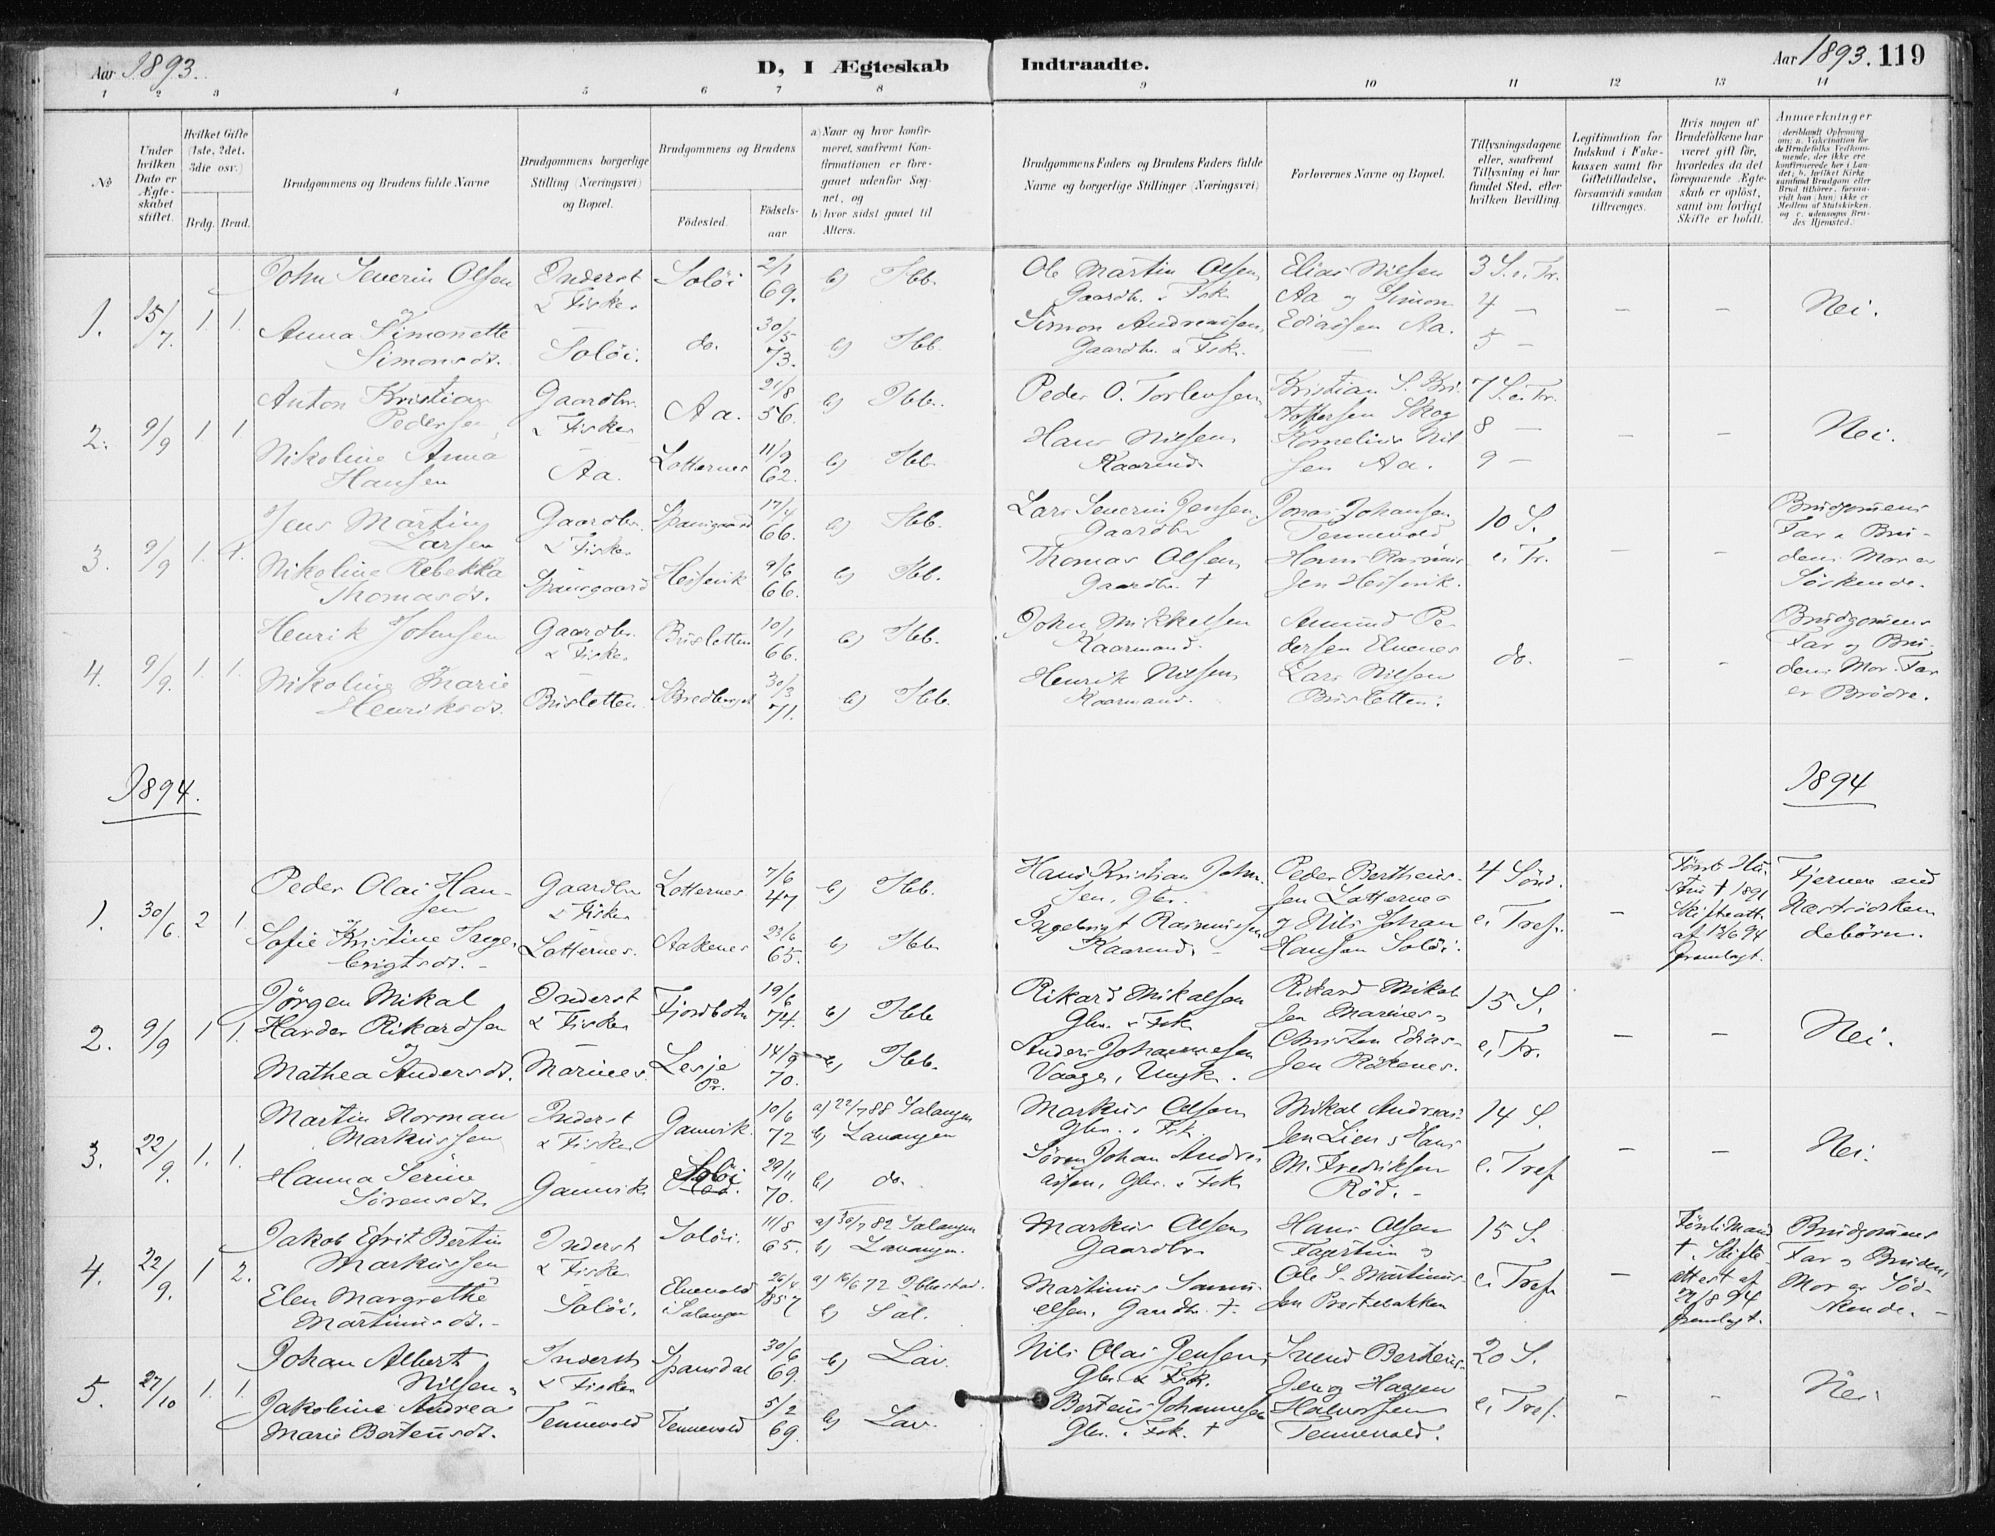 Aar 1893.
D, I Ægteskab
Indtraadte.
Aar 1893. 119
1 2 3 4 5 6 7 8 9 10 11 12 13 14
No
Under hvilken Dato er Ægteskabet stiftet.
Hvilket Gifte (1ste, 2det, 3die osv.)
Brdg. Brud.
Brudgommens og Brudens fulde Navne
Brudgommens borgerlige Stilling (Næringsvei) og Bopæl.
Brudgommens og Brudens
Födested.
Födselsaar
a) Naar og hvor konfirmeret, saafremt Konfirmationen er foregaaet udenfor Sognet, og
b) hvor sidst gaaet til Alters.
Brudgommens Faders og Brudens Faders fulde Navne og borgerlige Stillinger (Næringsvei)
Forlovernes Navne og Bopæl.
Tillysningsdagene eller, saafremt Tillysning ei har fundet Sted, efter hvilken Bevilling
Legitimation for Indskud i Enkekassen samt for Giftetilladelse, forsaavidt saadan tiltrænges.
Hvis nogen af Brudefolkene har været gift för, hvorledes da det foregaaende Ægteskab er oplöst, samt om lovligt Skifte er holdt.
Anmærkninger
1. 15/7. 1. 1.
John Severin Olsen
og
Anna Simonette
Simonsdt.
Inderst
& Fisker
Soløi.
Soløi
2/1
69.
do.
30/5
73.
b) Ibb.
b) Ibb.
Ole Martin Olsen,
Gaardbr. & Fsk.
Simon Andreassen,
Gaardbr. & Fsk.
Elias Nilsen
Aa og Simon
Ediassen Aa.
3 S. e. Tr.
4 —
5 —
—
—
Nei.
2. 9/9 1 1
Anton Kristian
Pedersen
Nikoline Anna
Hansen
Gaardbr.
& Fisker
Aa.
Aa.
21/8
56.
Lotternes
11/9
62.
b) Ibb.
b) Ibb.
Peder O. Torlevsen
Hans Nilsen
Kaarmd.
Kristian S. Kri
stoffersen Skog
Kornelius Nil
sen Aa.
7 S. e. Tr.
8 —
9 —
—
—
Nei.
3. 9/9 1. 1.
Jens Martin
Larsen
Nikoline Rebekka
Thomasdt.
Gaardbr.
& Fisker
Spansgaard
Spansgaard
17/4
66.
9/6
66.
b) Ibb.
b) Ibb.
Lars Severin Jensen,
Gaardbr
Thomas Olsen
Gaardbr. †
Jonas Johansen
Tennevold
Hans Rasmus
sen
10 S.
e. Tr.
—
—
Brudgomens
Far & Bru-
dens Mor er
Söskende.
4. 9/9. 1. 1.
Henrik Johnsen
og
Nikoline Marie
Henriksdt.
Gaardbr.
& Fisker
Brusletten.
Brusletten
10/1
66.
30/3
71.
b) Ibb.
b) Ibb.
John Mikkelsen
Kaarmand.
Henrik Nilsen
Kaarmand.
Amund Pe-
dersen Elvenes
Lars Nilsen
Brusletten.
do.
—
—
Brudgomens
Far og Bru-
dens Mor. Far
er Brödre.
1894.
1894
1. 30/6. 2 1.
Peder Olai Han-
sen
og
Sofie Kristine Inge-
brigtsdt.
Gaardbr
& Fisker
Lotternes.
Lotternes
7/6
47
23/6
65.
b) Ibb.
b) Ibb.
Hans Kristian John
sen, Gbr.
Ingebrigt Rasmussen
Kaarmd.
Peder Bertheus-
sen Lotternes
og Nils Johan
Hansen Soløi.
4 Sönd.
e. Tref.
—
Første Hu
stru † 1891
Skifteatt.
af 12/6 94
fremlagt.
Fjernere end
Næstsödsken
debörn.
2. 9/9 1 1.
Jørgen Mikal
Harder Rikardsen
og
Mathea Andersdt.
Inderst
& Fisker
Marines
Fjordbotn
19/6
74.
Lesje
Pr.
14/9
70.
b) Ibb
b) Ibb.
Rikard Mikalsen
Gbr. & Fsk
Anders Johannesen
Vaage, Ungk.
Rikard Mikal
sen Marines og
Christen Edias-
sen Rökenes.
15 S.
e. Tr.
—
—
Nei.
3. 22/9. 1. 1.
Martin Norman
Markussen
Hanna Serine
Sörensdt.
Inderst
& Fisker
Gamvik
Gamvik
10/6
72
Soløi
29/11
70.
a) 22/7 88 Salangen
b) Lavangen
b) do.
Markus Olsen
Gbr. & Fsk.
Søren Johan Andre
assen, Gbr. & Fsk
Mikal Andreas-
sen Lien & Hans
M. Fredriksen
Röd.
14 S.
e. Tref
—
—
Nei.
4. 22/9. 1 2.
Jakob Efrit Bertin
Markussen
og
Elen Margrethe
Martinusdt.
Inderst
& Fisker
Soløi.
Soløi.
11/8
65.
Elvevold
i Salangen
26/4
1857
a) 30/7 82 Salangen
b) Lavangen.
a) 16/6 72 Ibbestad.
b) Sal.
Markus Olsen
Gaardbr
Martinus Samu-
elsen, Gaardbr. †.
Hans Olsen
Fagertun og
Ole S. Martinus-
sen Prestebakken
15 S.
e. Tref
—
Första Mand
†. Skifte-
attest af
29/8 94
fremlagt.
Brudgommens
Far og Brudens
Mor er Söd-
skende.
5. 27/10 1. 1.
Johan Albert
Nilsen og
Jakobine Andrea
Marie Berteusdt.
Inderst
& Fisker
Tennevold
Spansdal
30/6
69.
Tennevold
5/2
69.
b) Lav.
b) Lav.
Nils Olai Jensen,
Gbr & Fsk.
Berteus Johannesen
Gbr. & Fsk. †
Svend Berteus-
sen og Haagen
Halvorsen
Tennevold.
20 S.
e. Tref.
—
—
Nei